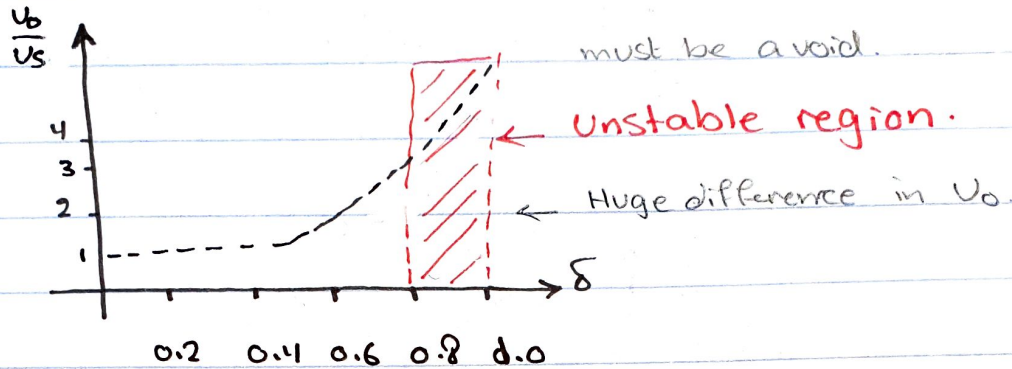 Vo
Vs
must be avoid.
4
unstable region.
3
2
Huge difference in Vo.
1
δ
0.2 0.4 0.6 0.8 1.0